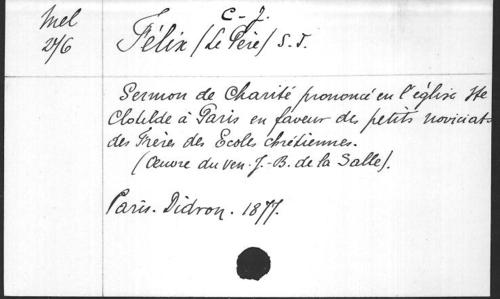 Mel
276
C-J.
Félix (Le Père) S.J.
Sermon de Charité prononcé en l'église Ste
Clotilde à Paris en faveur des petits noviciats
des Frères des Ecoles chrétiennes.
(Oeuvre du ven. J.-B. de la Salle).
Paris. Didron. 1877.